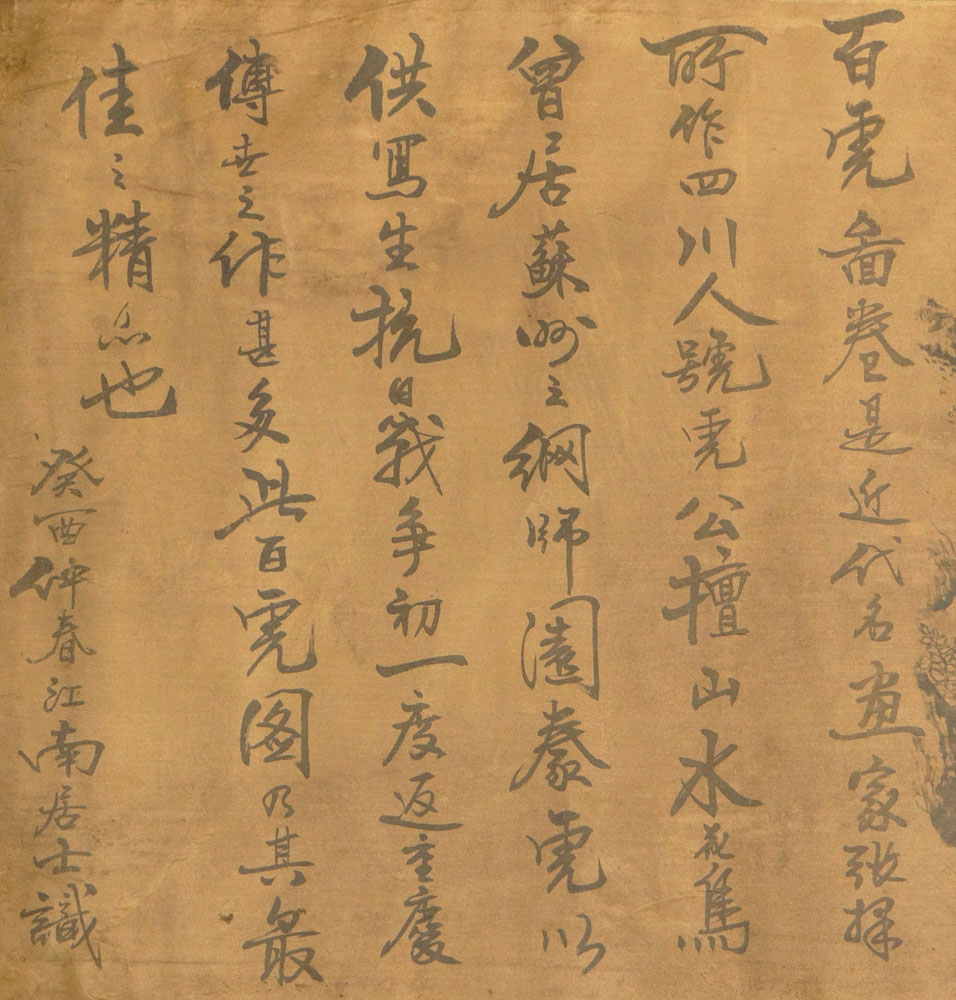 百虎畵卷是近代名画家張揮
所作四川人號虎公擅山水花鳥
曾居蘇州之網師園豢虎以
供寫生抗日戰争初一度返重慶
傳世之作甚多此百虎图乃其最
佳之精品也
癸酉仲春江南居士識